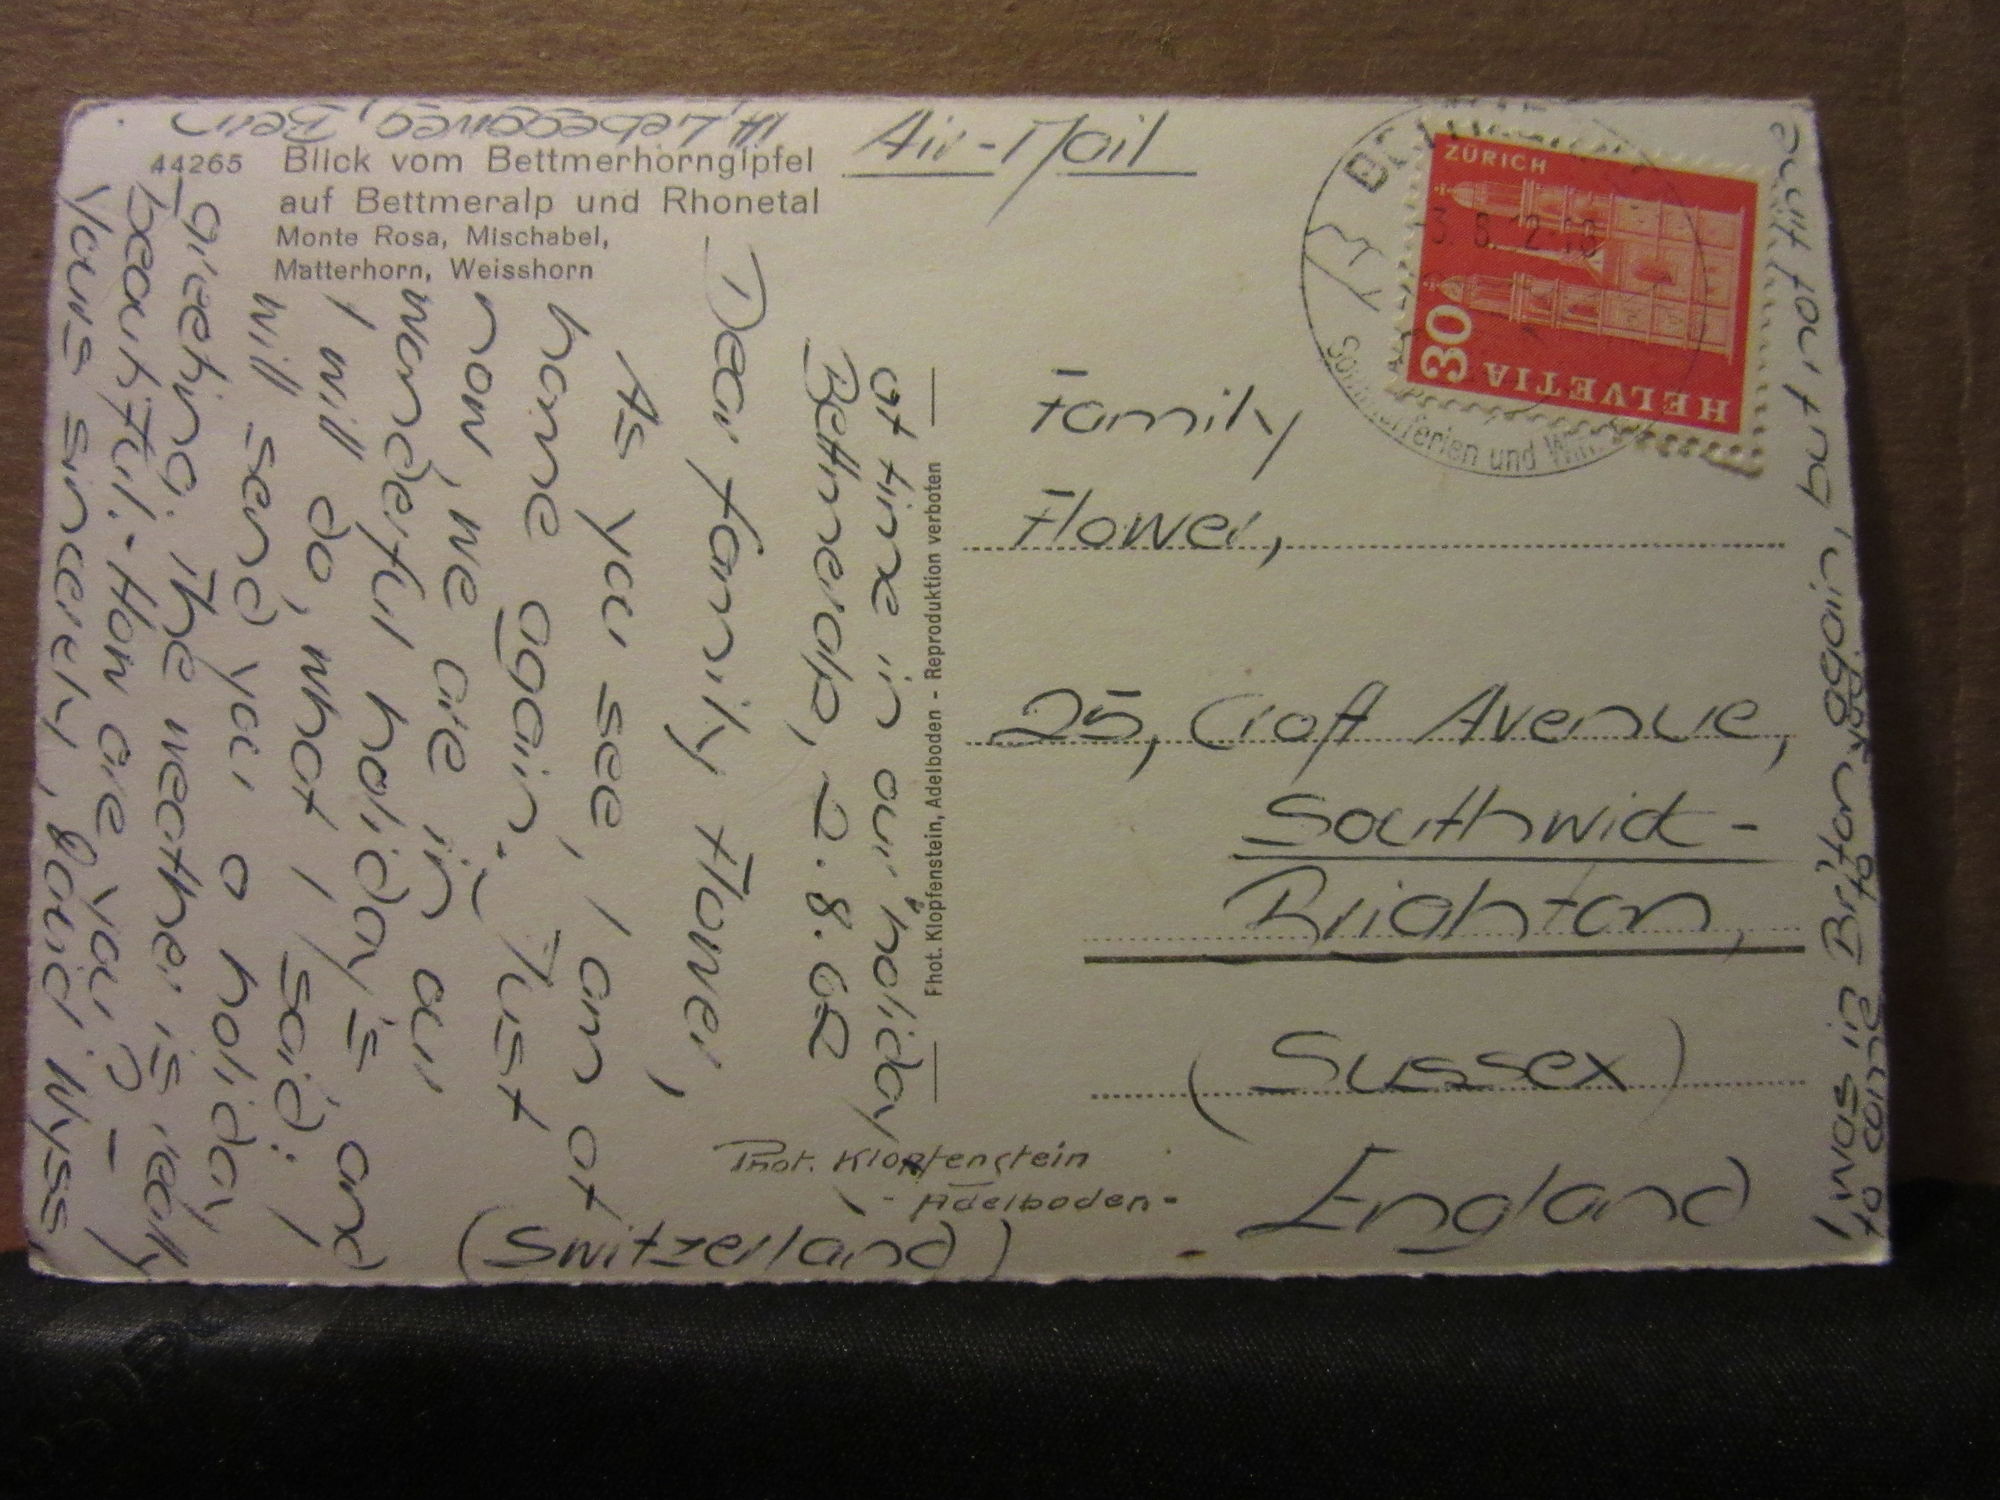 44265 Blick vom Bettmerhorngipfel
auf Bettmeralp und Rhonetal
Monte Rosa, Mischabel,
Matterhorn, Weisshorn
Air-Mail
ZÜRICH
30
HELVETIA
Sommerferien und
Family
Flower,
25, Croft Avenue,
Southwick-
Brighton,
(Sussex)
England
Fhot. Klopfenstein, Adelboden - Reproduktion verboten
Phot. Klopfenstein
- Adelboden -
(Switzerland)
at time in our holiday
Bettmeralp, 2.8.62
Dear family Flower,
As you see, I am at
home again. - Just
now, we are in our
wonderful holiday's and
I will do, what I said: I
will send you a holiday
greeting. The weather is really
beautiful. - How are you? -
Yours sincerely, Wyss
Bern
I was in again, but not
to come